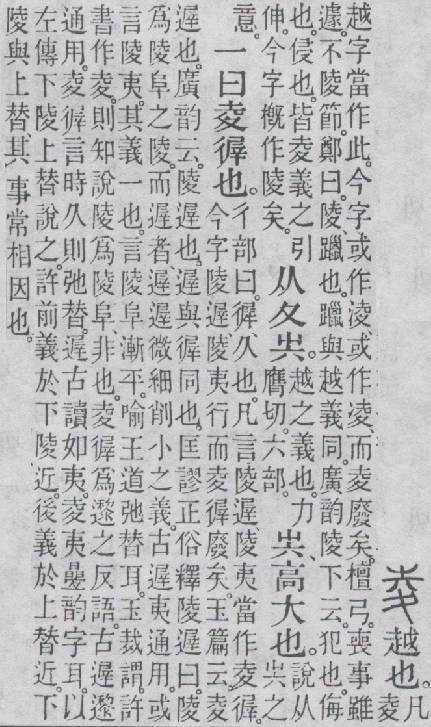 夌越也。凡
夌
越字當作此。今字、或作淩或作凌、而夌廢矣。檀弓。喪事雖
遽。不陵節。鄭曰。陵、躐也。躐與越義同。廣韵陵下云。犯也。侮
也。侵也。皆夌義之引
伸。今字槪作陵矣。
从夂坴。
越之義也。力
膺切。六部。
坴、高大也。
說从
坴之
意。
一曰夌徲也。
彳部曰。徲、久也。凡言陵遲陵夷當作夌徲。
今字陵遲陵夷行而夌徲廢矣。玉篇云。夌徲
遲也。廣韵云。陵遲也。遲與徲同也。匡謬正俗釋陵遲曰。陵
爲陵阜之陵。而遲者遲遲微細削小之義。古遲夷通用。或
言陵夷。其義一也。言陵阜漸平。喻王道弛替耳。玉裁謂許
書作夌。則知說陵爲陵阜、非也。夌徲爲之反語。古遲
通用。夌徲言時久則弛替。遲古讀如夷。夌夷曡韵字耳。以
左傳下陵上替說之。許前義於下陵近。後義於上替近。下
陵與上替、其事常相因也。